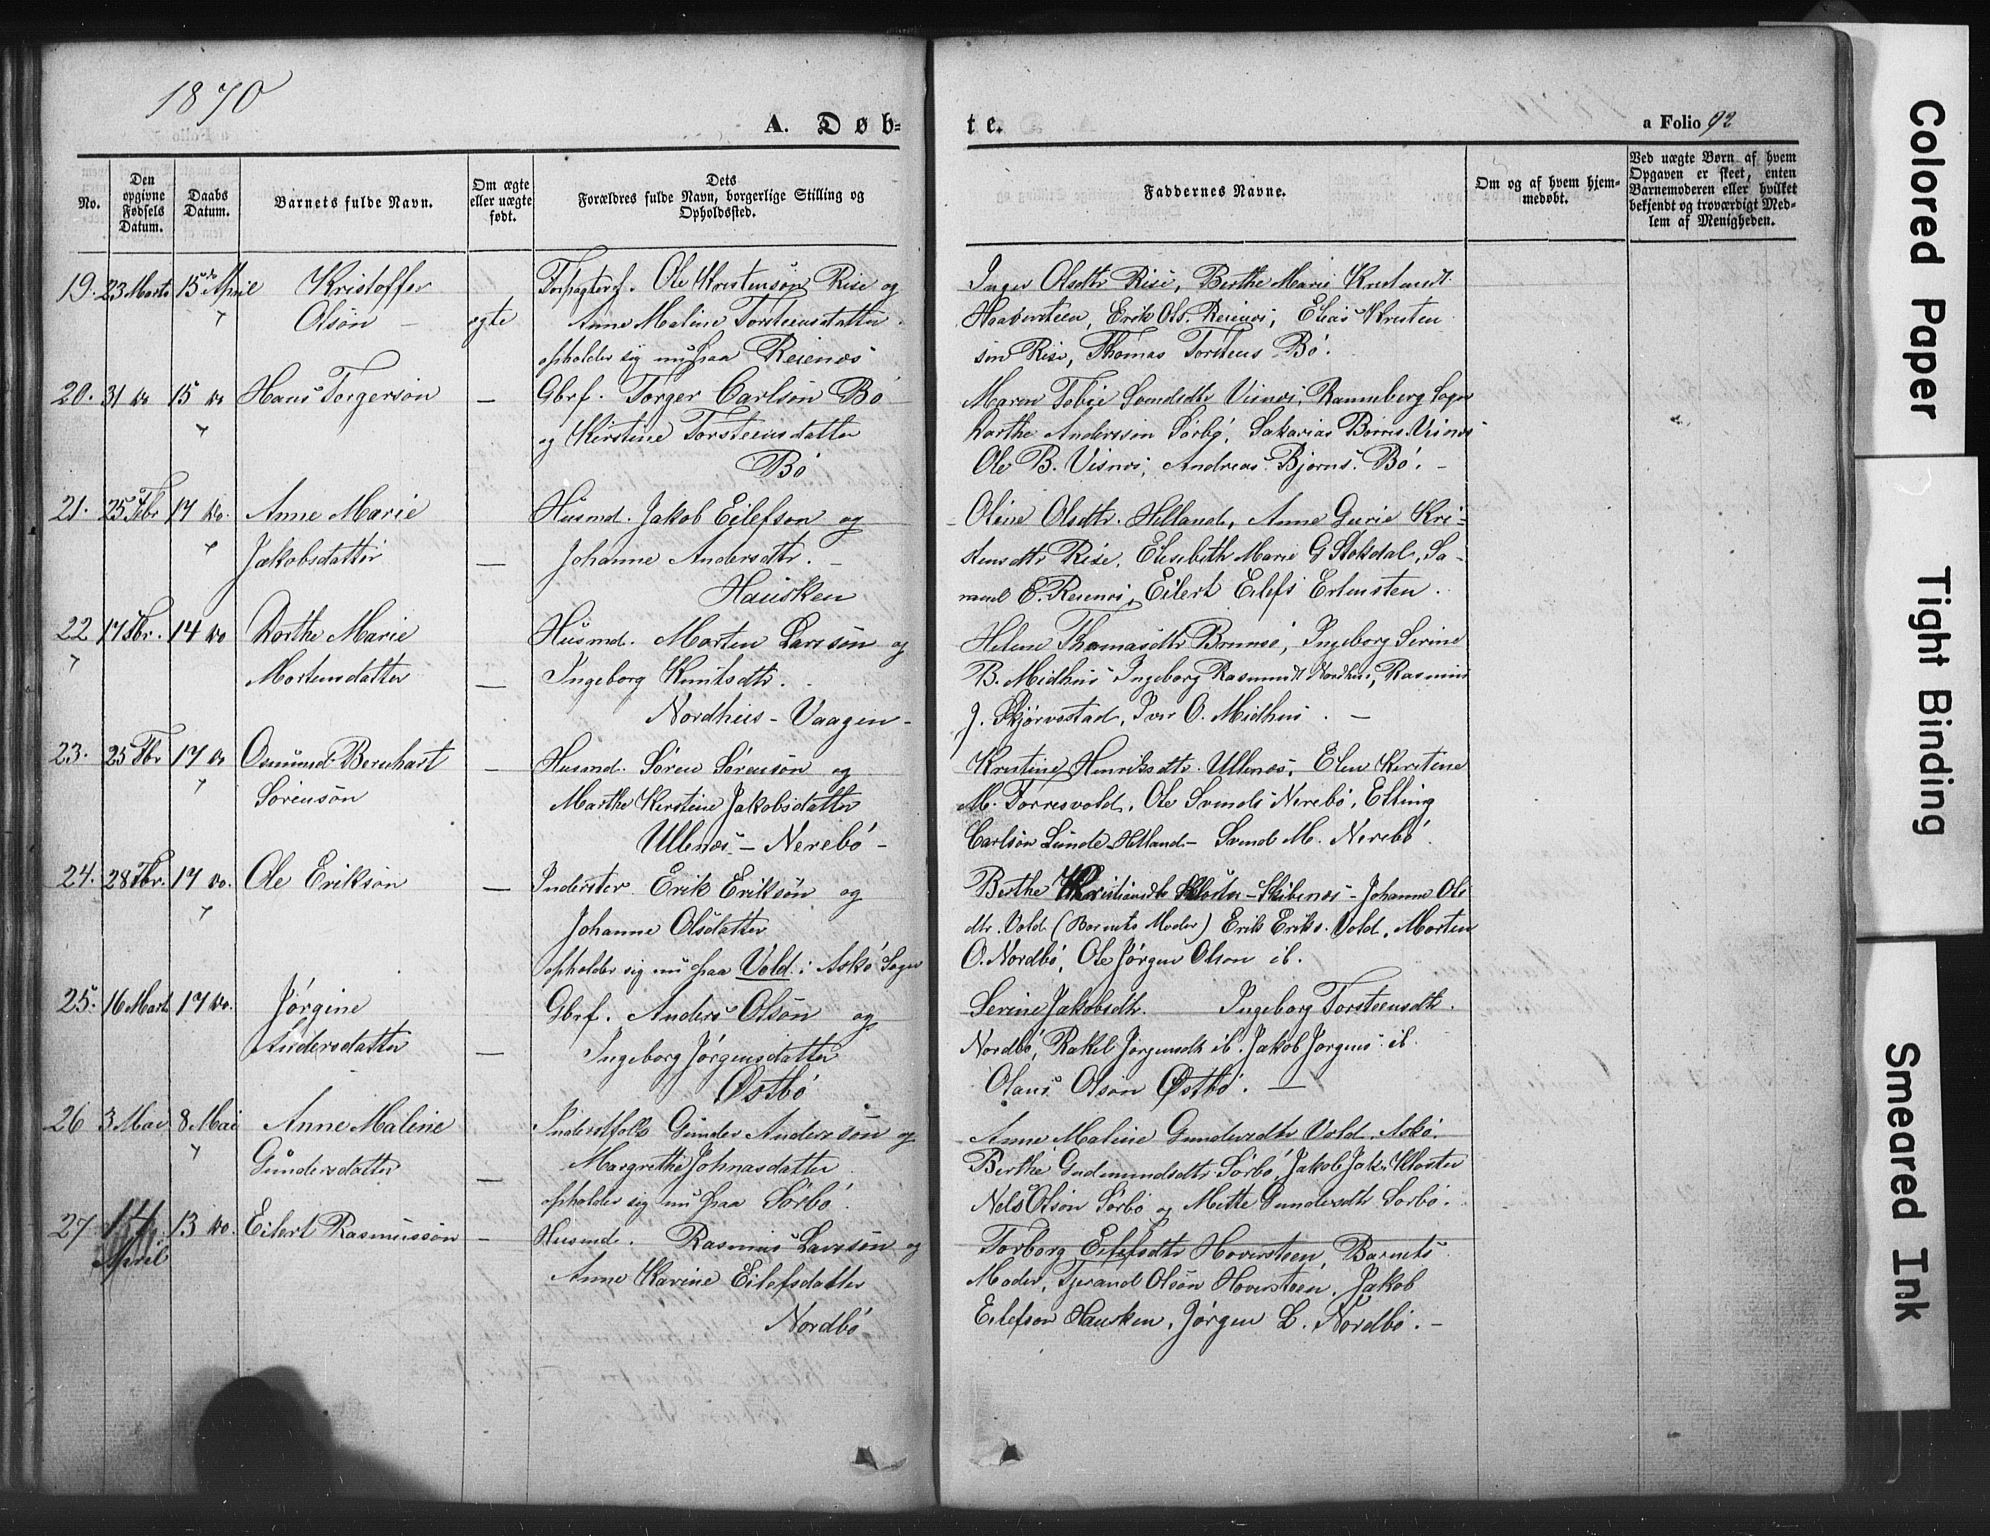 1870
A. Døb-
te.
a Folio 92
No.
Den opgivne Fødsels Datum.
Daabs Datum.
Barnets fulde Navn.
Om ægte eller uægte født.
Dets Forældres fulde Navn, borgerlige Stilling og Opholdssted.
Faddernes Navne.
Om og af hvem hjem-
medøbt.
Ved uægte Børn af hvem
Opgaven er skeet, enten
Barnemoderen eller hvilket
bekjendt og troværdigt Med-
lem af Menigheden.
19. 23 Marts 15 April Kristoffer Ole Kristensøn Rise og
Olsøn - egte Anne Maline Torsteensdatter
opholder sig nu paa Reienes
Inger Olsdtr Rise, Berthe Marie
Erik Ols. Reienes, Elias Kristen
søn Rise, Thomas Torsteens Bø.
20. 31 do 15 do Hans Torgersøn - Gbrf. Torger Carlsøn Bø
og Kirstine Torsteensdatter
Bø
Maren Tobie Visnes, Ranneberg Sogn
Dorthe Anderssøn Sørbø, Sakarias Visnes
Ole B. Visnes, Andreas Bjørns. Bø. -
21. 25 Fbr 17 do. Anne Marie Husmd. Jakob Eilefsøn og
Jakobsdatter - Johanne Andersdtr. -
Hausken
Oline Olsdtr. Helland, Anne Gurie Kri-
stensdtr Rise, Elisebeth Marie G Stokdal, Sa-
muel E. Reienes, Eilert Eilefs
22 17 Fbr. 14 do Dorthe Marie Husmd. Morten Larssøn og
Mortensdatter - Ingeborg Knutsdtr.
Nordhus - Vaagen -
Helene Thomasdtr Brunsø, Ingeborg Serine
B. Midhus Ingeborg Rasmusdt Nordhus, Rasmus
J. Skjørvestad, Iver O. Midhus. -
23. 25 Fbr 17 do Osmund Bernhart - Husmd. Søren Sørensøn og
Sørensøn Marthe Kirstine Jakobsdatter
Ullenes - Nerebø -
Kristine Henriksdtr. Ullenes, Elen Kirstine
M. Torresvold, Ole Svends Nerebø, Elling
Carlsøn Lunde Helland - Svend M. Nerebø
24. 28 Fbr. 17 do. Ole Eriksøn - Inderster Erik Eriksøn og
Johanne Olsdatter
opholder sig nu paa Vold i Askø Sogn
Berthe Kristiansdtr Kloster - Skibenes - Johanne Ols
dtr. Vold (Barnets Moder) Erik Eriks. Vold, Morten
O. Nordbø, Ole Jørgen Olson ib.
25. 16 Marts 17 do. Jørgine Gbrf. Anders Olsøn og
Andersdatter - Ingeborg Jørgensdatter
Østbø
Serine Jakobsdtr. Ingeborg Torsteensdtr.
Nordbø, Rakel Jørgensdtr ib. Jakob Jørgens ib.
Olaus Olsøn Østbø. -
26 3 Mai 8 Mai Anne Maline Inderstfolk Gunder Anderssøn og
Gundersdatter - Margrethe Johnasdatter
opholder sig nu paa Sørbø.
Anne Maline Gundersdtr Vold, Askø.
Berthe Gudmundsdtr Sørbø Jakob Jak. Kloster
Nels Olsøn Sørbø og Mette Gundersdtr Sørbø.
27 14 April 13 do. Eilert Rasmussøn - Husmd. Rasmus Larssøn og
Anne Karine Eilefsdatter
Nordbø
Torborg Eilefsdtr Hoversteen, Barnets
Moder, Tjerand Olsøn Hoversteen, Jakob
Eilefson Hausken, Jørgen L. Nordbø. -
Colored Paper
Tight Binding
Smeared Ink